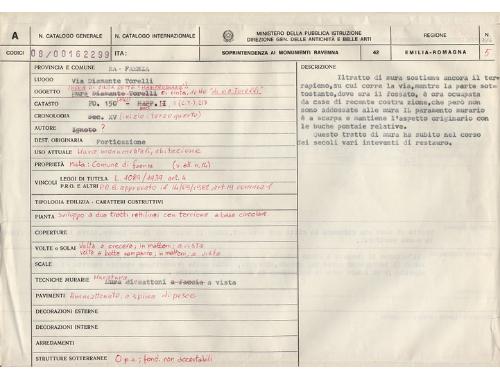 A
N. CATALOGO GENERALE
N. CATALOGO INTERNAZIONALE
MINISTERO DELLA PUBBLICA ISTRUZIONE
DIREZIONE GEN. DELLE ANTICHITÀ E BELLE ARTI
REGIONE
N.
CODICI
08/00162299
ITA:
SOPRINTENDENZA AI MONUMENTI RAVENNA
42
EMILIA-ROMAGNA
5
PROVINCIA E COMUNE RA - FAENZA
LUOGO Via Diamante Torelli
OGGETTO Mura Diamante Torelli
CATASTO FO. 150
CRONOLOGIA Sec. XV (inizio terzo quarto)
AUTORE Ignoto
DEST. ORIGINARIA Fortificazione
USO ATTUALE Mura monumentali, abitazione
PROPRIETÀ Mista: Comune di Faenza
VINCOLI
LEGGI DI TUTELA L. 1089/1939 art. 4
P.R.G. E ALTRI P.R.G. approvato il
TIPOLOGIA EDILIZIA - CARATTERI COSTRUTTIVI
PIANTA Sviluppo a due tratti rettilinei con torrione a base circolare
COPERTURE
VOLTE o SOLAI Volte a crociera, in mattoni, a vista
volte a botte in mattoni, a vista
SCALE
TECNICHE MURARIE Muratura
Mura di mattoni a faccia a vista
PAVIMENTI Ammattonato, a spina di pesce
DECORAZIONI ESTERNE
DECORAZIONI INTERNE
ARREDAMENTI
STRUTTURE SOTTERRANEE fond. non accertabili
DESCRIZIONE
Il tratto di mura sostiene ancora il ter-
rapieno, su cui corre la via, mentre la parte sot-
tostante, dove era il fossato, è ora occupata
da case di recente costruzione, che però non
sono addossate alle mura. Il paramento murario
è a scarpa e mantiene l'aspetto originario con
le buche pontaie relative.
Questo tratto di mura ha subito nel corso
dei secoli vari interventi di restauro.